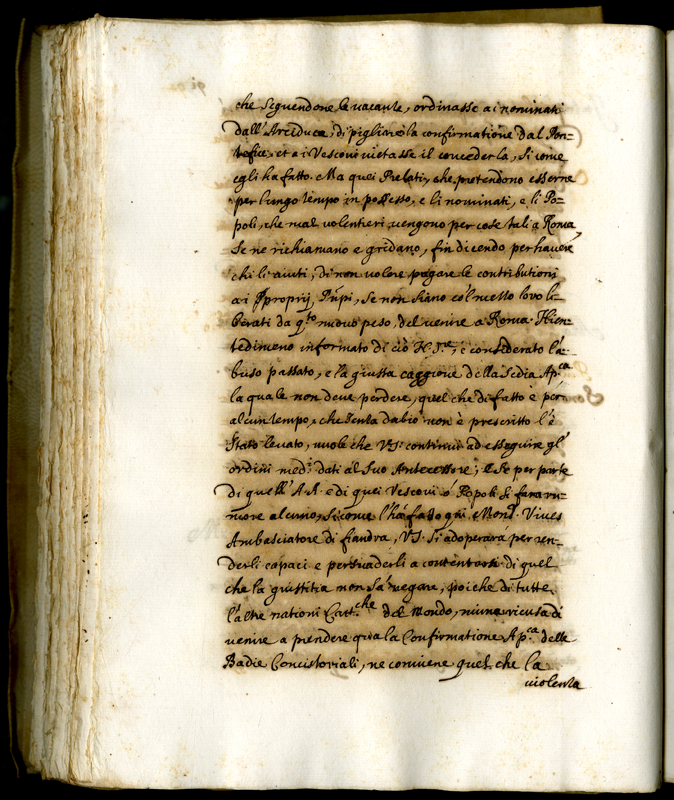 che seguendone le vacante, ordinasse a i nominati
dall'Arciduca, di pigliare la confirmatione dal Pon=
tefice, et a i Vescovi vietasse il concederla, si come
egli ha fatto. Ma quei Prelati, che pretendono esserne
per lungo tempo in possesso, e li nominati, e li Po=
poli, che mal volentieri vengono per cose tali a Roma,
se ne richiamano e gridano, fin dicendo per havere
chi li aiuti, di non volere pagare le contributioni
a i proprij Prñpi, se non siano co'l mezzo loro li=
berati da q.to nuovo peso, del venire a Roma. Nien=
tedimeno informato di ciò N. S.re, e considerato l'a=
buso passato, e la giusta caggione della Sedia Ap.ca
la quale non deve perdere, quel che di fatto e per
alcun tempo, che senza dubio non è prescritto l'è
stato levato, vuole che V.S. continui ad esseguire gl'
ordini med.i dati al suo Antecessore; e se per parte
di quell'A.A. e di quei Vescovi ó Popoli si farà ru=
more alcuno, si come l'há fatto quì Mons.r Vives
Ambasciatore di fiandra, V.S. si adoperarà per ren=
derli capaci e persuaderli a contentarsi di quel
che la giustitia non sà negare, poiche di tutte
l'altre nationi Catt.che del Mondo, niuna ricusa di
venire a prendere quà la Confirmatione Ap.ca delle
Badie Concistoriali, ne conviene quel che la
violenza